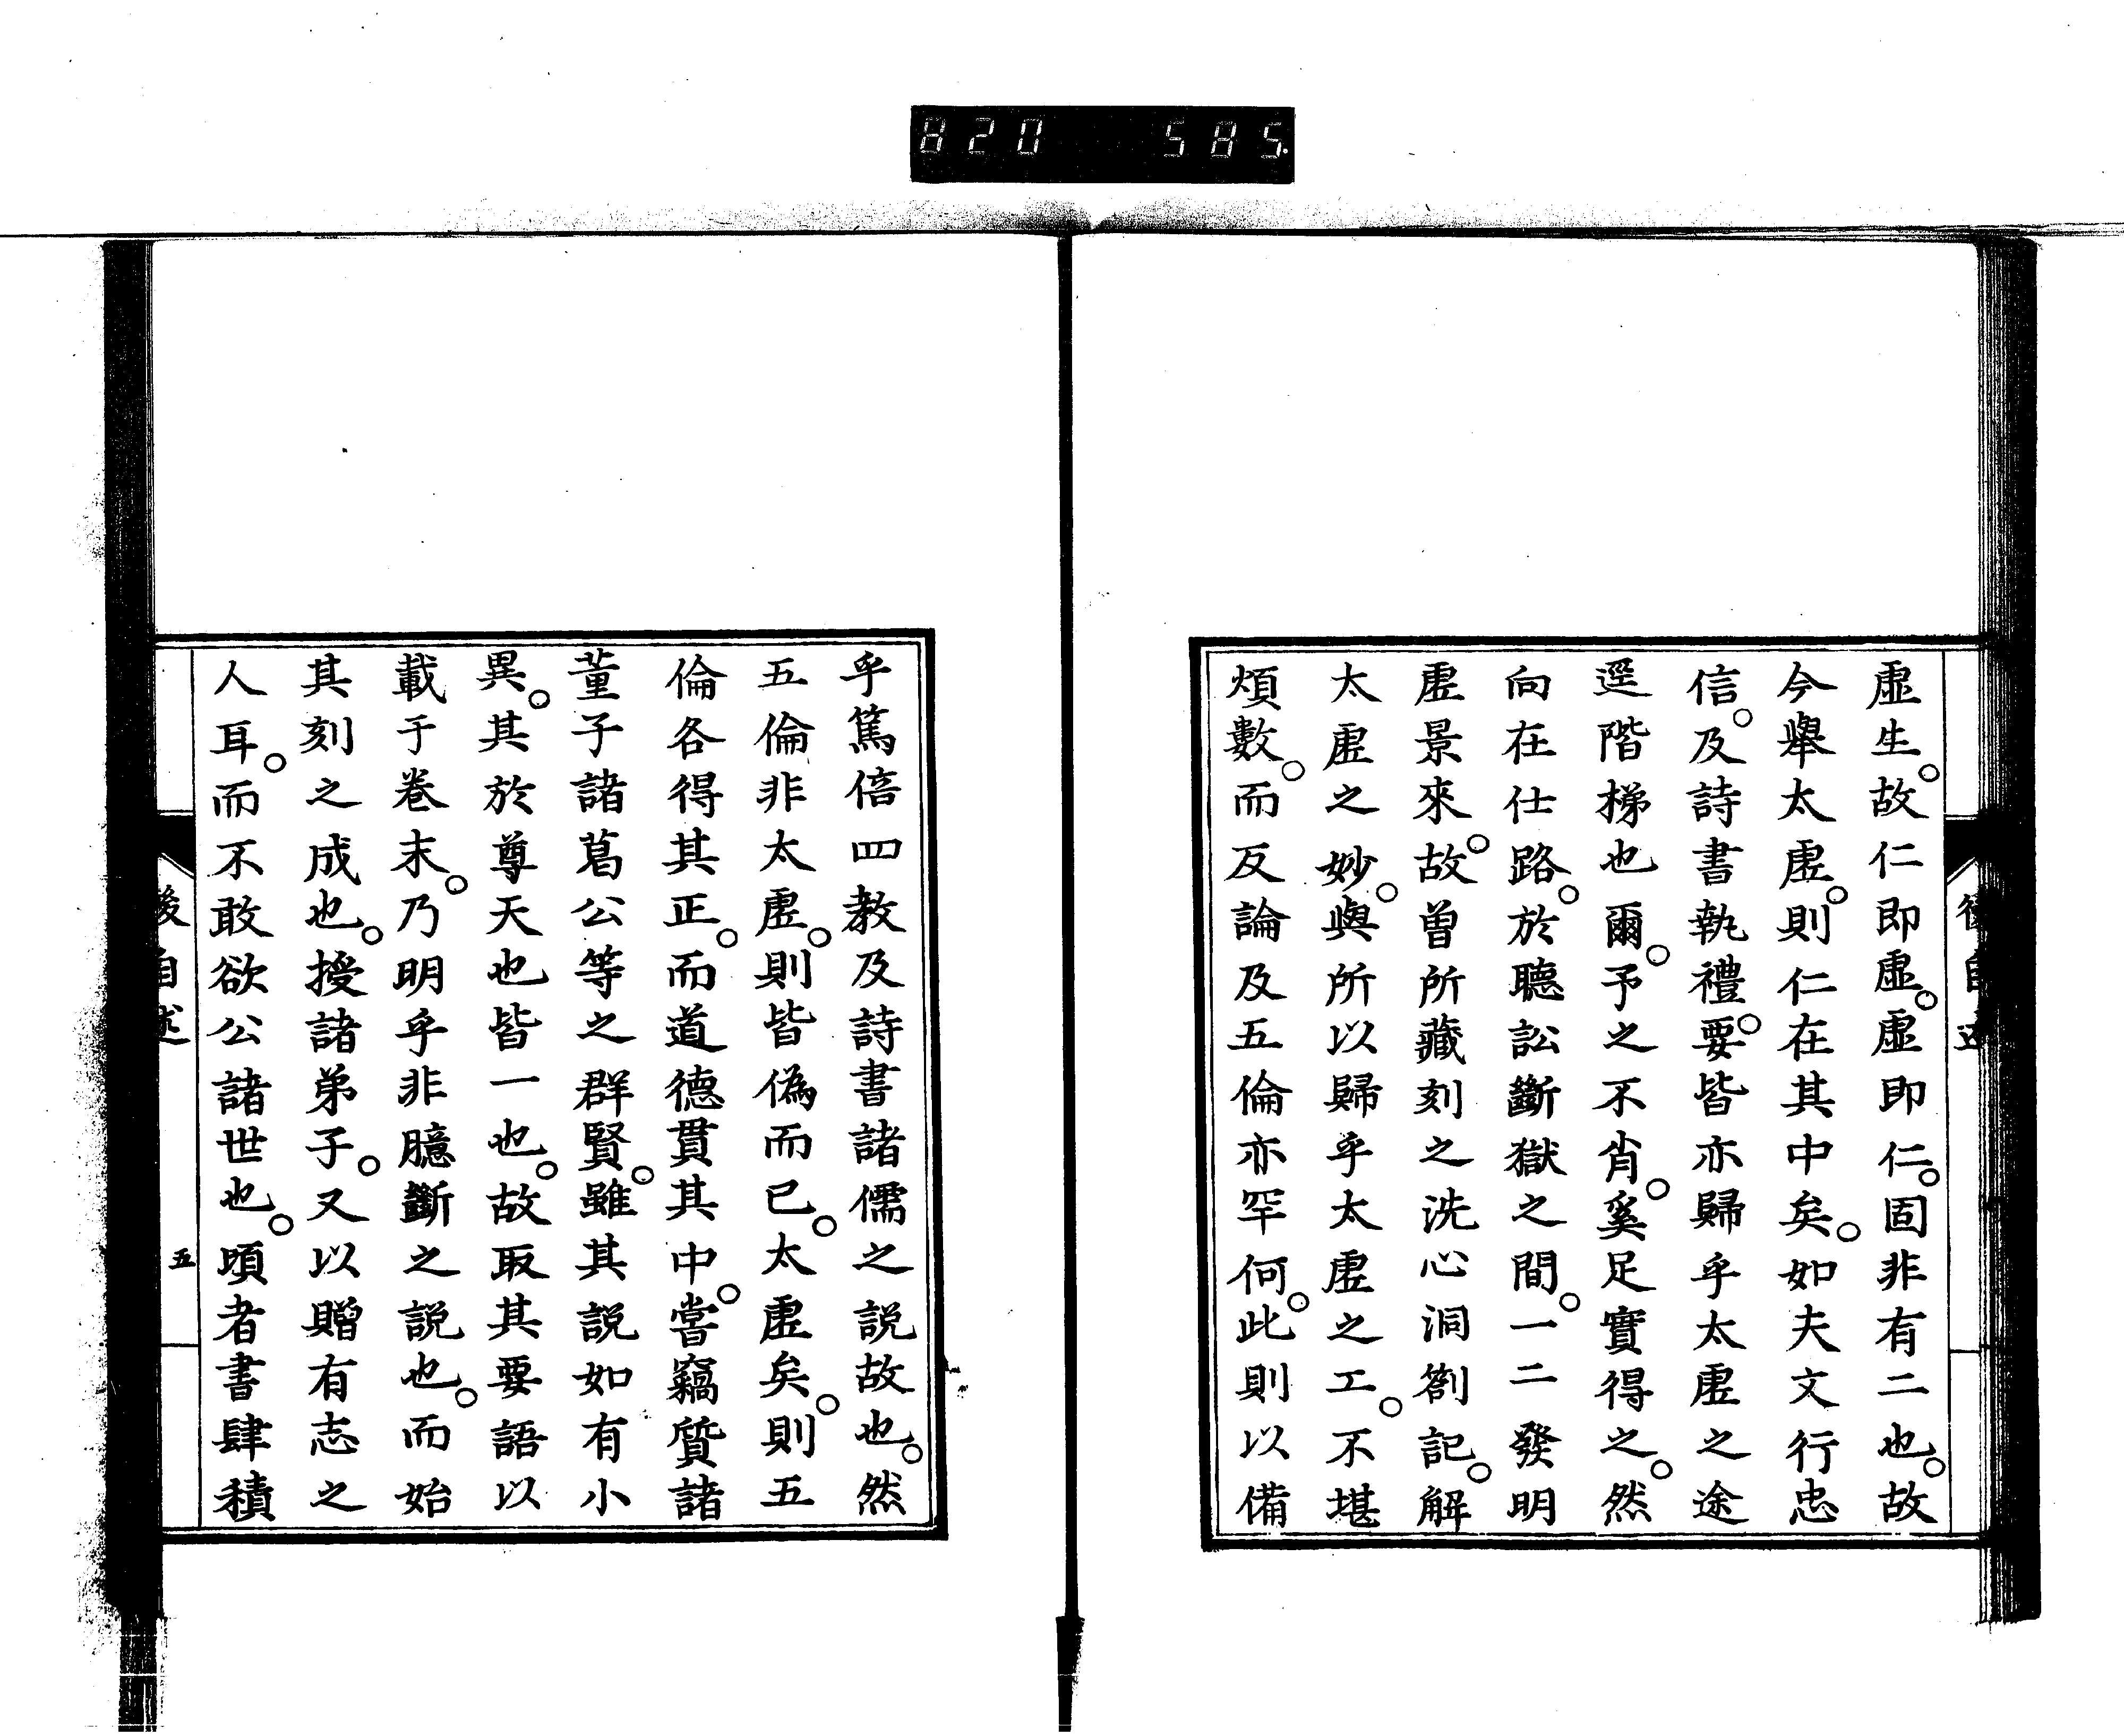 820 585
虛生。故仁即虛。虛即仁。固非有二也。故
今舉太虛。則仁在其中矣。如夫文行忠
信。及詩書執禮。要皆亦歸乎太虛之途
逕階梯也爾。予之不肖。奚足實得之。然
向在仕路。於聽訟斷獄之間。一二發明
虛景來。故曾所藏刻之洗心洞劄記。解
太虛之妙。與所以歸乎太虛之工。不堪
煩數。而反論及五倫亦罕何。此則以備
乎篤倍四教及詩書諸儒之説故也。然
五倫非太虛。則皆偽而已。太虛矣。則五
倫各得其正。而道德貫其中。嘗竊質諸
董子諸葛公等之群賢。雖其説如有小
異。其於尊天也皆一也。故取其要語以
載于卷末。乃明乎非臆斷之説也。而始
其刻之成也。授諸弟子。又以贈有志之
人耳。而不敢欲公諸世也。頃者書肆積
後自述
五